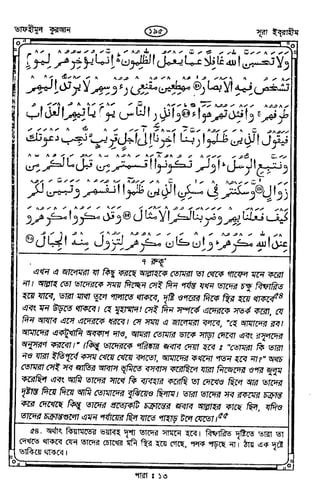 তাফহীমুল কুরআন
১৯৫
সূরা ইবরাহীম
وَلَا تَحْسَبَنَّ اللَّهَ غَافِلًا عَمَّا يَعْمَلُ الظَّلِمُونَ ۚ إِنَّمَا يُؤَخِّرُهُمْ لِيَوْمٍ
تَشْخَصُ فِيهِ الْأَبْصَارُ ۝ مُهْطِعِينَ مُقْنِعِي رُءُوسِهِمْ لَا يَرْتَدُّ إِلَيْهِمْ
طَرْفُهُمْ ۚ وَأَفْئِدَتُهُمْ هَوَاءٌ ۝ وَأَنْذِرِ النَّاسَ يَوْمَ يَأْتِيهِمُ الْعَذَابُ
فَيَقُولُ الَّذِينَ ظَلَمُوا رَبَّنَا أَخِّرْنَا إِلَى أَجَلٍ قَرِيبٍ ۙ نُجِبْ دَعْوَتَكَ
وَنَتَّبِعِ الرُّسُلَ ۗ أَوَلَمْ تَكُونُوا أَقْسَمْتُمْ مِنْ قَبْلُ مَا لَكُمْ مِنْ
زَوَالٍ ۝ وَسَكَنْتُمْ فِي مَسْكِنِ الَّذِينَ ظَلَمُوا أَنْفُسَهُمْ وَتَبَيَّنَ لَكُمْ
كَيْفَ فَعَلْنَا بِهِمْ وَضَرَبْنَا لَكُمُ الْأَمْثَالَ ۝ وَقَدْ مَكَرُوا مَكْرَهُمْ وَ
عِنْدَ اللَّهِ مَكْرُهُمْ ۖ وَإِنْ كَانَ مَكْرُهُمْ لِتَزُولَ مِنْهُ الْجِبَالُ ۝
৭ রুকূ'
এখন এ জালেমরা যা কিছু করছে আল্লাহকে তোমরা তা থেকে গাফেল মনে করো
না। আল্লাহ তো তাদেরকে সময় দিচ্ছেন সেই দিন পর্যন্ত যখন তাদের চক্ষু বিস্ফারিত
হয়ে যাবে, তারা মাথা তুলে পালাতে থাকবে, দৃষ্টি ওপরের দিকে স্থির হয়ে থাকবে৫৪
এবং মন উড়তে থাকবে। হে মুহাম্মাদ! সেই দিন সম্পর্কে এদেরকে সতর্ক করো, যে
দিন আযাব এসে এদেরকে ধরবে। সে সময় এ জালেমরা বলবে, "হে আমাদের রব!
আমাদের একটুখানি অবকাশ দাও, আমরা তোমার ডাকে সাড়া দেবো এবং রসূলদের
অনুসরণ করবো।" (কিন্তু তাদেরকে পরিষ্কার জবাব দেয়া হবে ঃ "তোমরা কি তারা
নও যারা ইতিপূর্বে কসম খেয়ে খেয়ে বলতো, আমাদের কখনো পতন হবে না।" অথচ
তোমরা সেই সব জাতির আবাস ভূমিতে বসবাস করেছিলে যারা নিজেদের ওপর জুলুম
করেছিল এবং আমি তাদের সাথে কি ব্যবহার করেছি তা দেখেও ছিলে আর তাদের
দৃষ্টান্ত দিয়ে দিয়ে আমি তোমাদের বুঝিয়েও ছিলাম। তারা তাদের সব রকমের চক্রান্ত
করে দেখেছে কিন্তু তাদের প্রত্যেকটি চক্রান্তের জবাব আল্লাহর কাছে ছিল, যদিও
তাদের চক্রান্তগুলো এমন পর্যায়ের ছিল যাতে পাহাড় টলে যেতো।৫৫
৫৪. অর্থাৎ কিয়ামতের ভয়াবহ দৃশ্য তাদের সামনে হবে। বিস্ফারিত দৃষ্টিতে তারা তা
দেখতে থাকবে যেন তাদের চোখের মনি স্থির হয়ে গেছে, পলক পড়ছে না। ঠায় এক দৃষ্টে
তাকিয়ে থাকবে।
পারা ঃ ১৩